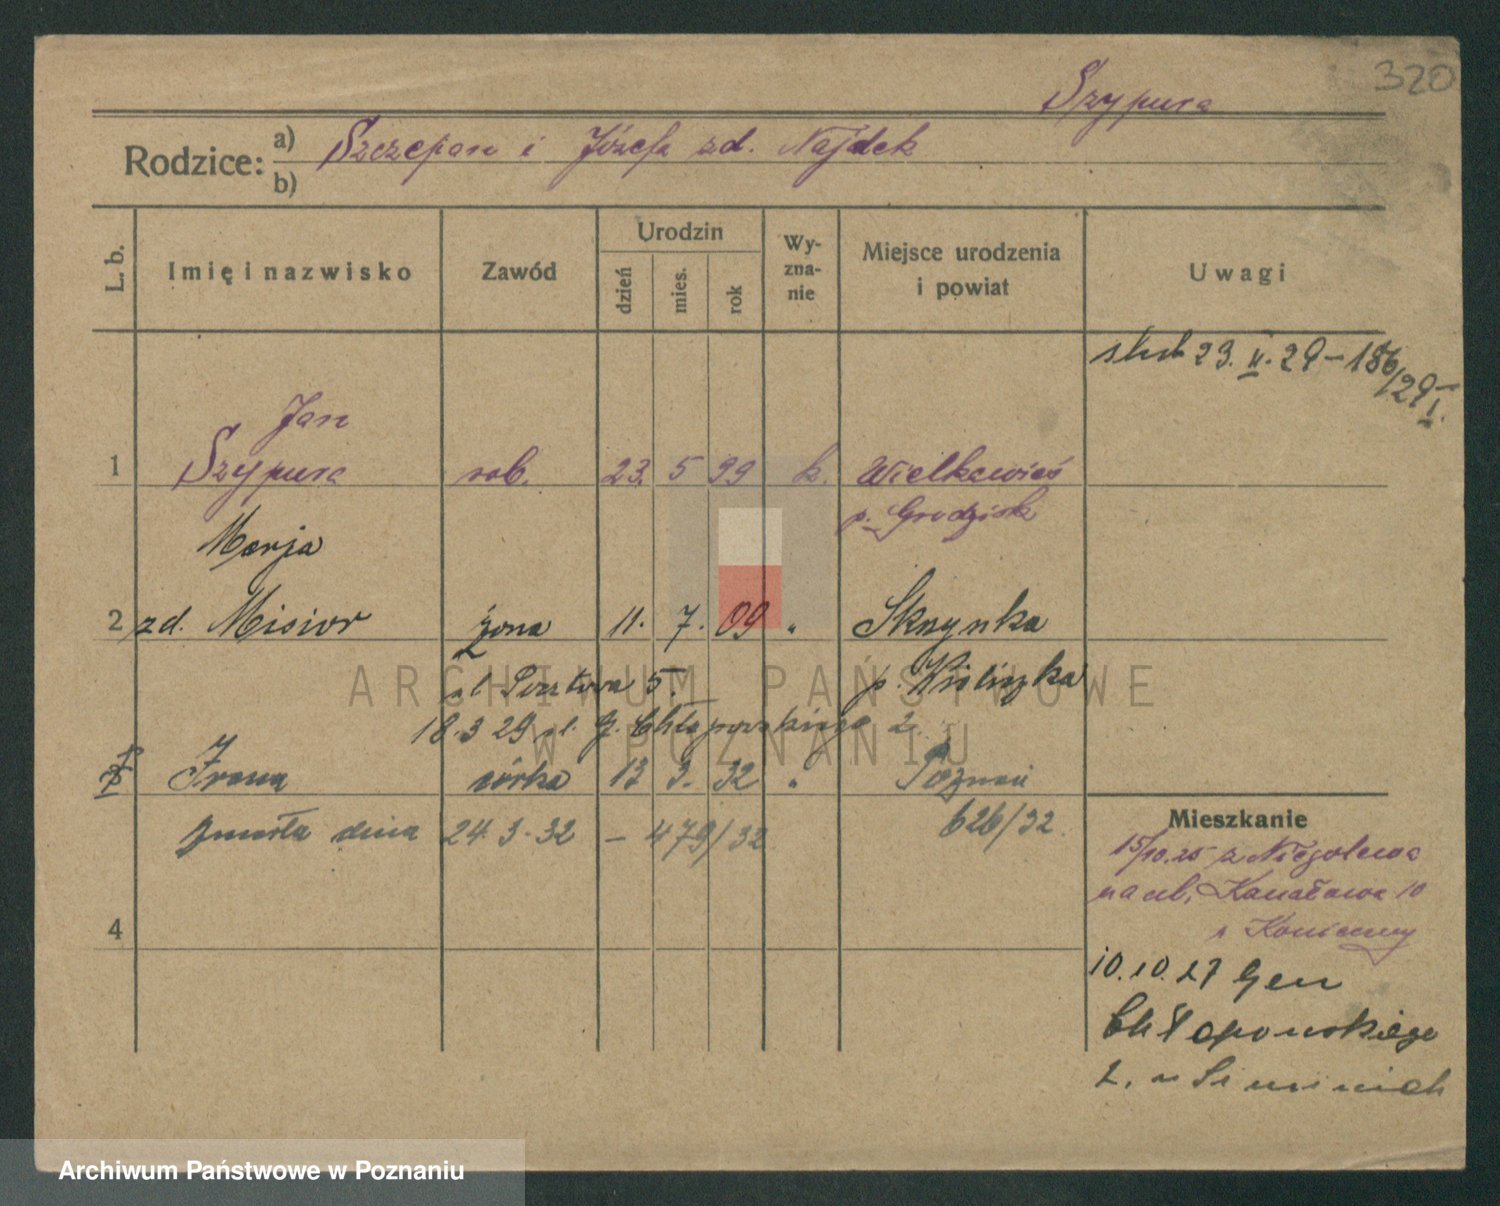 320
Szypura
Rodzice: a) Szczepan i Józefa zd. Najdek
b)
L. b. Imię i nazwisko Zawód Urodzin dzień mies. rok Wyzna-nie Miejsce urodzenia i powiat Uwagi
ślub 23. II. 29 – 186/29 I.
Jan
1 Szypura rob. 23. 5 99 k. Wielkawieś
p. Grodzisk
Marja
2 zd. Misior żona 11. 7. 09 " Skrzynka
ul 5. p.
18.3 29 ul. G. Chłapowskiego 2.
3 Irena córka 13 3. 32 " Poznań
zmarła dnia 24. 3. 32 – 479/32 626/32.
4
Mieszkanie
15/10.25 z Niegolewa
na ul. Kanałowa 10
10.10.27 Gen
Chłapowskiego
2.
ARCHIWUM PAŃSTWOWE
W POZNANIU
Archiwum Państwowe w Poznaniu